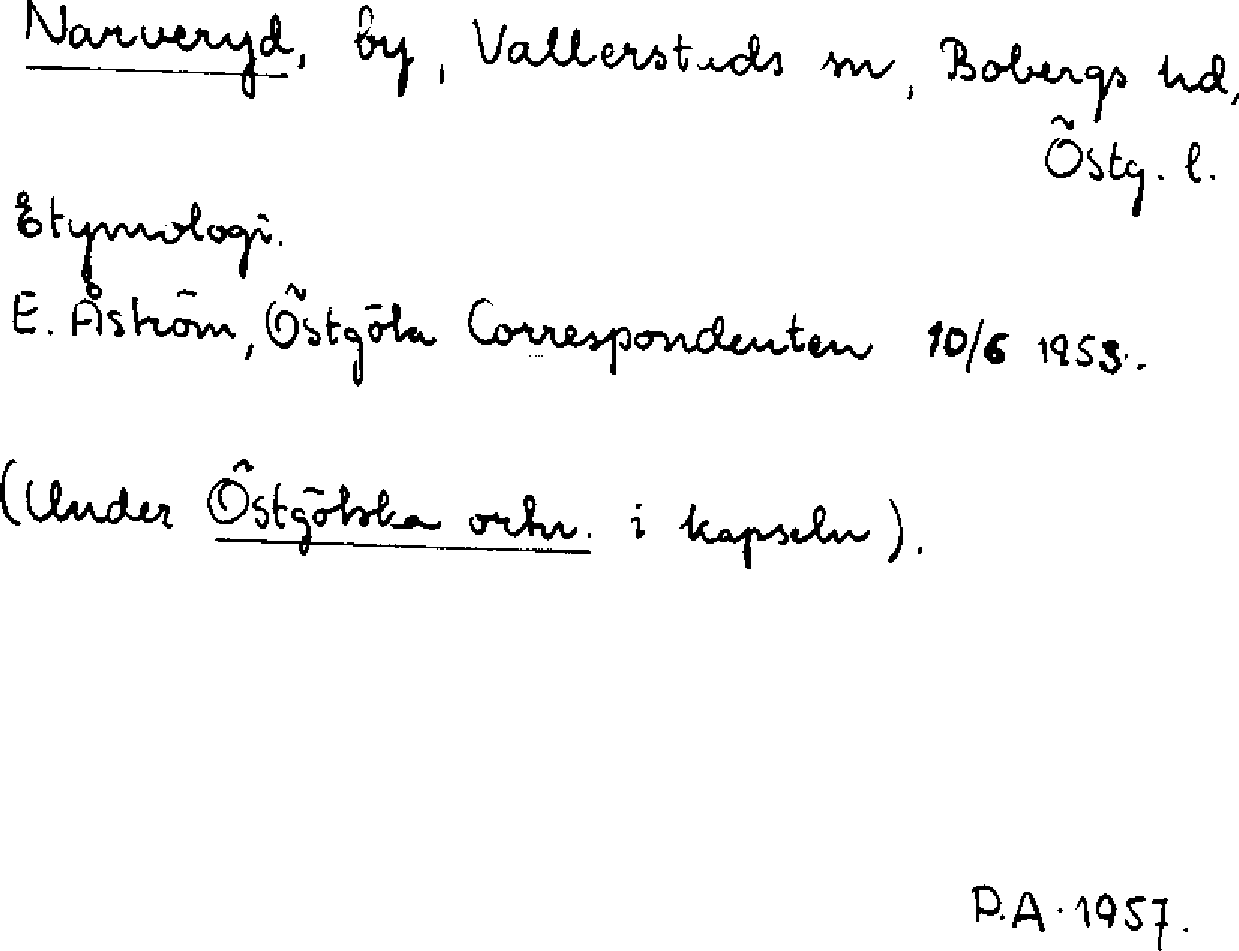 Narveryd, by, Vallersteds sn, Bobergs hd,
Östg. l.
Etymologi.
E. Åström, Östgöta Correspondenten 10/6 1953.
(Under Östgötska ortn. i kapseln).
P.A. 1957.